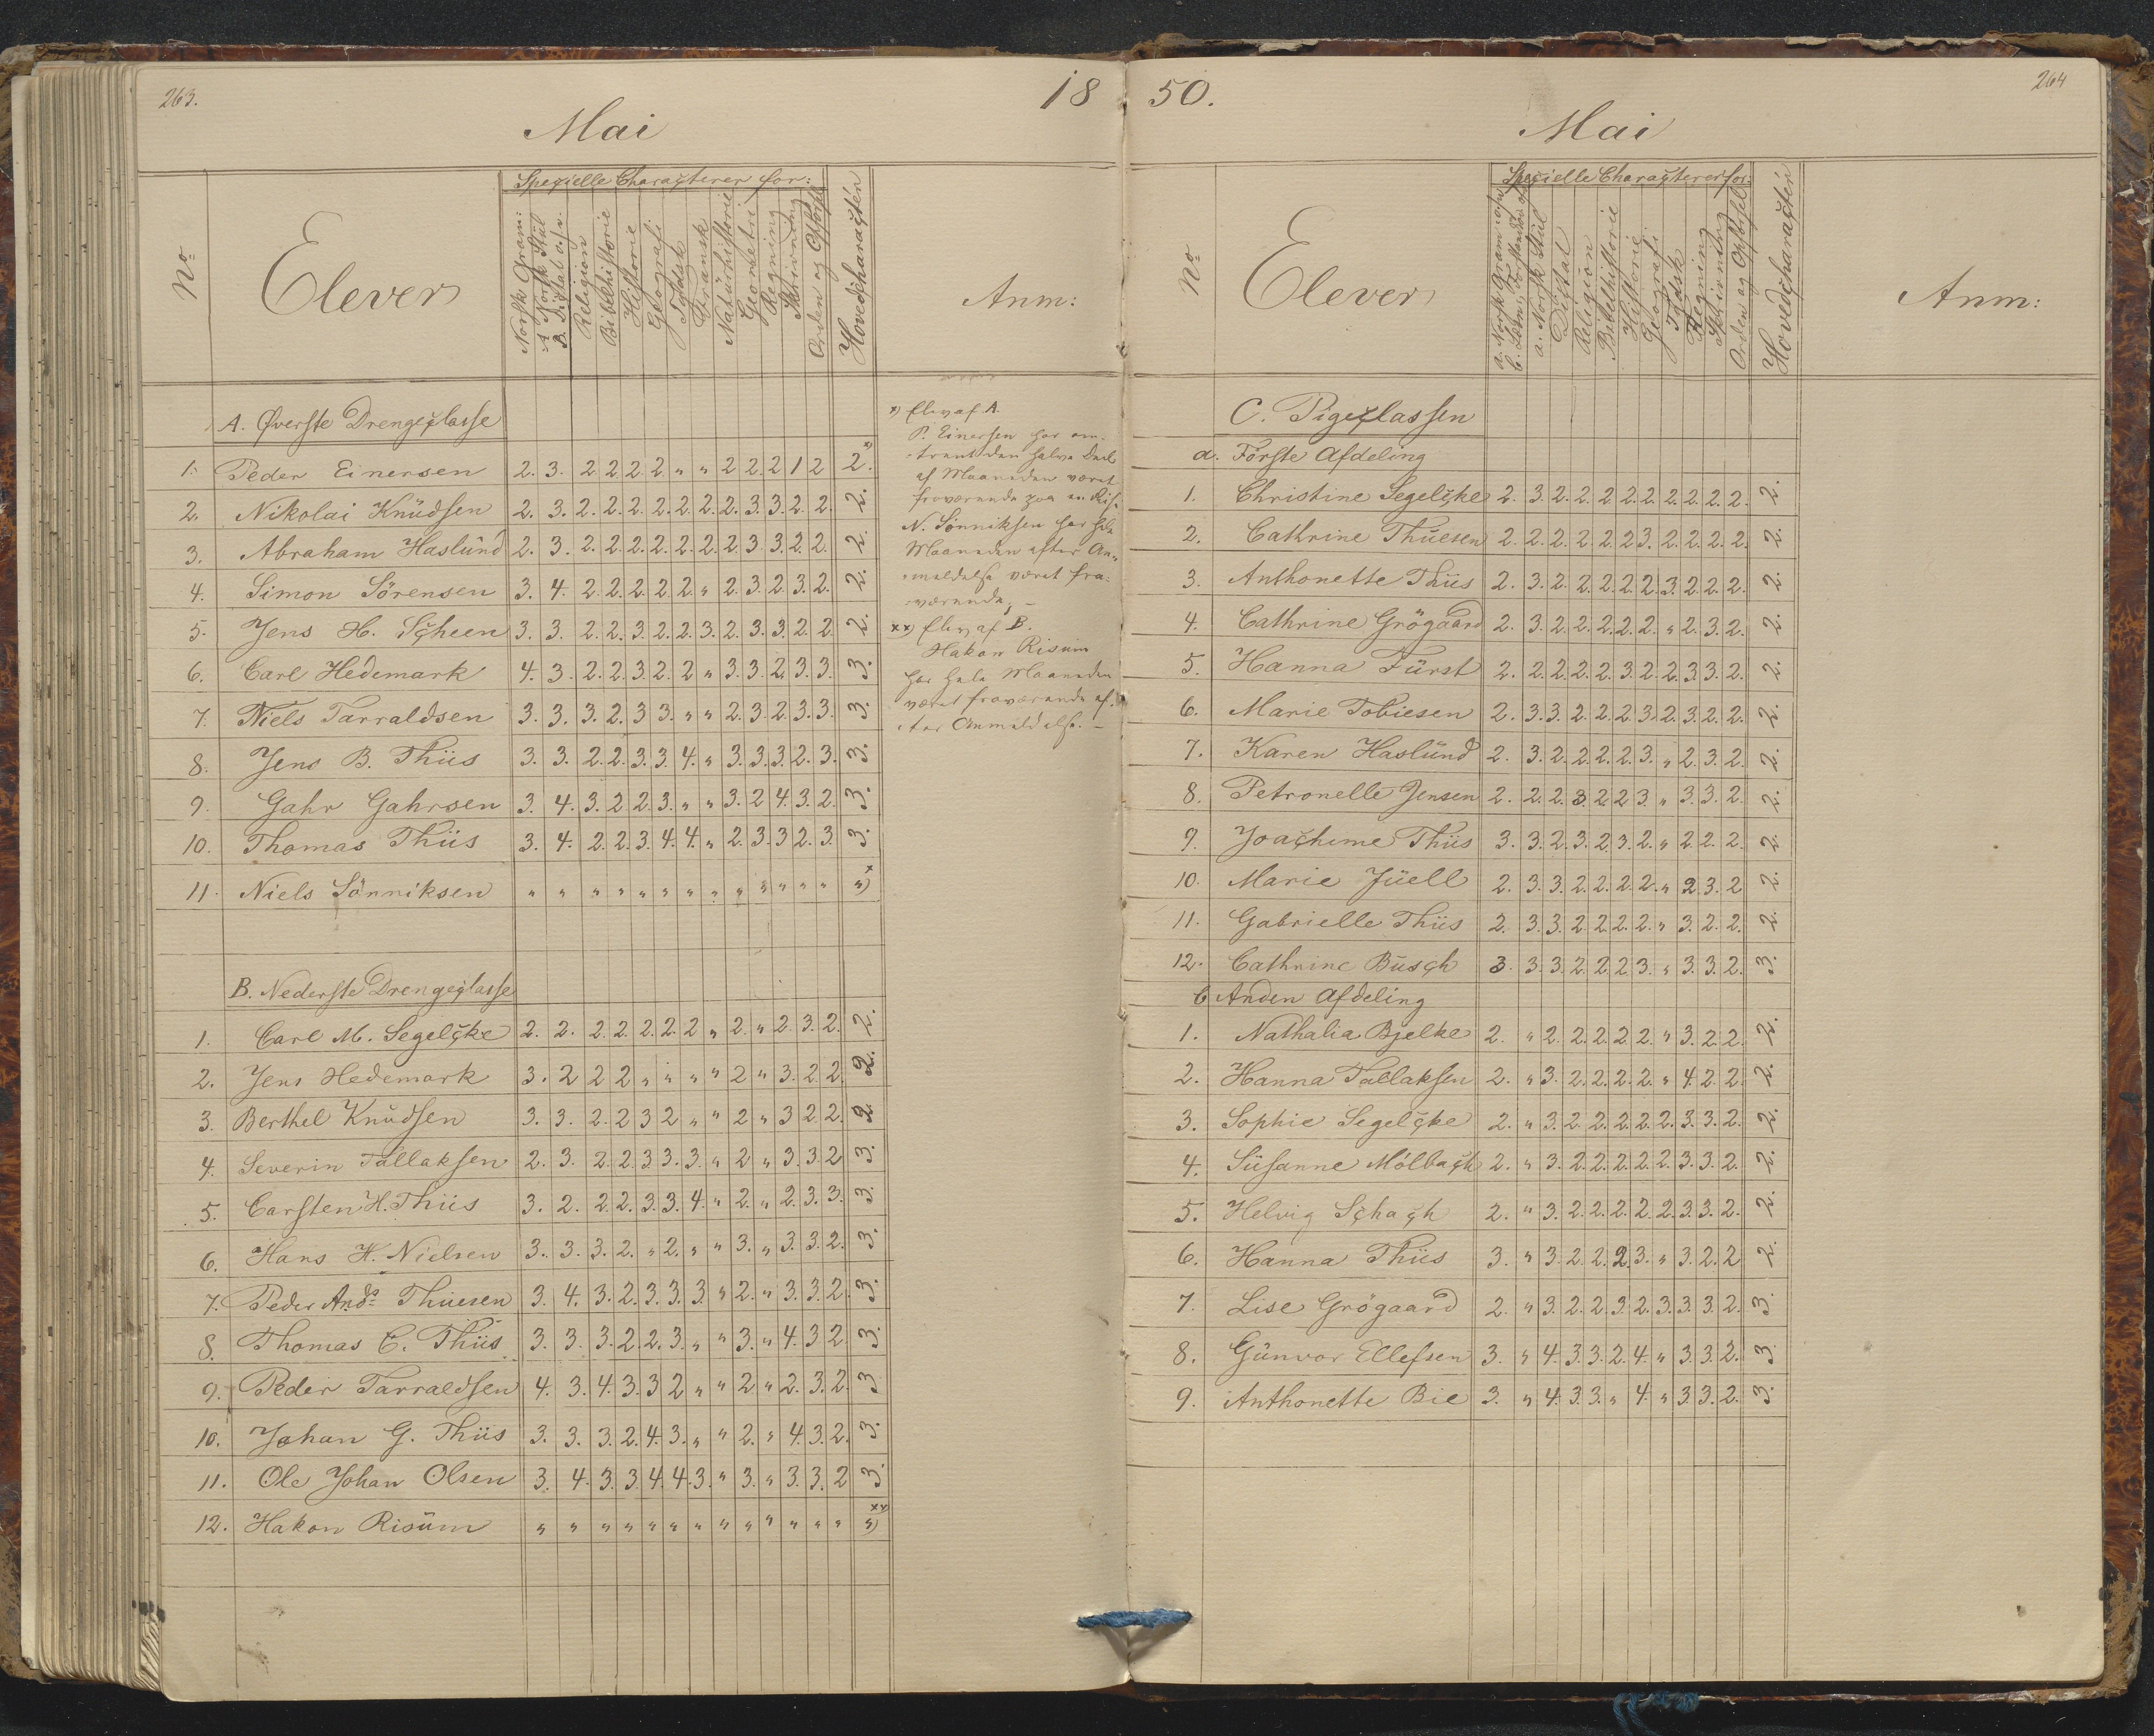 263.
18
Mai
No
Elever
Specielle Characterer for:
Norsk Gram:
A Norsk Stiil
B. Digtat o.s.v.
Religion
Bibelhistorie
Historie
Geografi
Tydsk
Fransk
Naturhistorie
Geometri
Regning
Skrivning
Orden og Opførsel
Hovedcharacteren
Anm:
A. Øverste Drengeclasse
1. Peder Einersen 2. 3. 2 2 2. 2 „ „ 2 2. 2 1 2 2. x)
2. Nikolai Knudsen 2. 3. 2. 2. 2. 2. 2. 2. 2. 3. 3. 2. 2. 2.
3. Abraham Haslund 2. 3. 2. 2. 2. 2. 2. 2. 2. 3 3. 2 2. 2.
4. Simon Sörensen 3. 4. 2. 2. 2. 2. 2. „ 2. 3. 2. 3. 2. 2.
5. Jens H. Scheen 3. 3. 2. 2. 3. 2. 2. 3. 2. 3. 3. 2 2. 2.
6. Carl Hedemark 4. 3. 2. 2. 3. 2. 2 „ 3. 3. 2. 3. 3. 3.
7. Niels Tarraldsen 3. 3. 3. 2. 3 3. „ „ 2. 3. 2. 3. 3. 3.
8. Jens B. Thiis 3. 3. 2. 2. 3. 3. 4. „ 3. 3. 3. 2. 3. 3.
9. Gahr Gahrsen 3. 4. 3. 2. 2. 3. „ „ 3. 2 4. 3. 2. 3.
10. Thomas Thiis 3. 4. 2. 2. 3. 4. 4. „ 2. 3. 3 2. 3. 3.
11. Niels Sönniksen „ „ „ „ „ „ „ „ „ „ „ „ „ „ x)
B. Nederste Drengeclasse
1. Carl M. Segelcke 2. 2. 2. 2. 2. 2. 2 „ 2. „ 2. 3. 2. 2.
2. Jens Hedemark 3. 2 2 2 „ „ „ „ 2 „ 3. 2. 2. 2.
3. Berthel Knudsen 3. 3. 2. 2 3 2 „ „ 2 „ 3 2 2. 2.
4. Severin Tallaksen 2. 3. 2. 2. 3 3. 3. „ 2 „ 3. 3. 2 3.
5. Carsten H. Thiis 3. 2. 2. 2. 3. 3. 4. „ 2. „ 2. 3. 3. 3.
6. Hans H. Nielsen 3. 3. 3. 2. „ 2. „ „ 3. „ 3. 3. 2. 3.
7. Peder Ands Thuesen 3. 4. 3. 2. 3. 3. 3. „ 2. „ 3. 3. 2. 3.
8. Thomas C. Thiis 3. 3. 3. 2. 2. 3. „ „ 3. „ 4. 3. 2. 3.
9. Peder Tarraldsen 4. 3. 4. 3. 3 2 „ „ 2 „ 2. 3. 2. 3
10. Johan G. Thiis 3. 3. 3. 2. 4. 3. „ „ 2. „ 4. 3. 2. 3.
11. Ole Johan Olsen 3. 4. 3. 3. 4. 4. 3. „ 3. „ 3. 3. 2 3.
12. Hakon Risum „ „ „ „ „ „ „ „ „ „ „ „ „ „ xx)
x) Elev af A.
P. Einersen har om-
trent den halve Deel
af Maaneden været
fraværende paa en Reise
N. Sönniksen har hele
Maaneden efter An-
meldelse været fra-
værende, –
xx) Elev af B.
Hakon Risum
har hele Maaneden
været fraværende ef-
ter Anmeldelse. –
50.
264
Mai
No
Elever
Specielle Characterer for:
a. Norsk Gram o.s.v.
b. Læsn, Forstands o.s.
a. Norsk Stiil
Digtat
Religion
Bibelhistorie
Historie
Geografi
Tydsk
Regning
Skrivning
Orden og Opförsel
Hovedcharacteren
Anm:
C. Pigeclassen
a. Förste Afdeling
1. Christine Segelcke 2. 3. 2. 2. 2. 2. 2. 2. 2. 2. 2. 2.
2. Cathrine Thuesen 2. 2. 2. 2. 2. 2 3. 2. 2. 2. 2. 2.
3. Anthonette Thiis 2. 3. 2. 2. 2. 2. 2. 3. 2. 2. 2. 2.
4. Cathrine Grögaard 2. 3. 2. 2. 2. 2. 2. „ 2. 3. 2. 2.
5. Hanna Fürst 2. 2. 2. 2. 2. 3. 2. 2. 3. 3. 2. 2.
6. Marie Tobiesen 2. 3. 3. 2. 2. 2. 3. 2. 3. 2. 2. 2.
7. Karen Haslund 2. 3. 2. 2. 2. 2. 3. „ 2. 3. 2. 2.
8. Petronelle Jensen 2. 2. 2. 3. 2. 2. 3. „ 3. 3. 2. 2.
9. Joachime Thiis 3. 3. 2. 3. 2. 3. 2. „ 2. 2. 2. 2.
10. Marie Juell 2. 3. 3. 2. 2. 2. 2. „ 2 3. 2 2.
11. Gabrielle Thiis 2. 3. 3. 2. 2. 2. 2. „ 3. 2. 2. 2.
12. Cathrine Busch 3. 3. 3. 2. 2. 2. 3. „ 3. 3. 2. 3.
b Anden Afdeling
1. Nathalia Bjelke 2. „ 2. 2. 2. 2. 2. „ 3. 2. 2. 2.
2. Hanna Tallaksen 2. „ 3. 2. 2. 2. 2. „ 4. 2. 2. 2.
3. Sophie Segelcke 2. „ 3. 2. 2. 2. 2. 2. 3. 3. 2. 2.
4. Susanne Mölbach 2. „ 3. 2. 2. 2. 2. 2. 3. 3. 2. 2.
5. Helvig Schach 2. „ 3. 2. 2. 2. 2. 2. 3. 3. 2. 2.
6. Hanna Thiis 3. „ 3. 2. 2. 2. 3. „ 3. 2. 2 2.
7. Lise Grögaard 2. „ 3. 2. 2. 3. 2. 3. 3. 3. 2. 3.
8. Gunvor Ellefsen 3. „ 4. 3. 3. 2. 4. „ 3. 3. 2. 3.
9. Anthonette Bie 3. „ 4. 3. 3. „ 4. „ 3. 3. 2. 3.